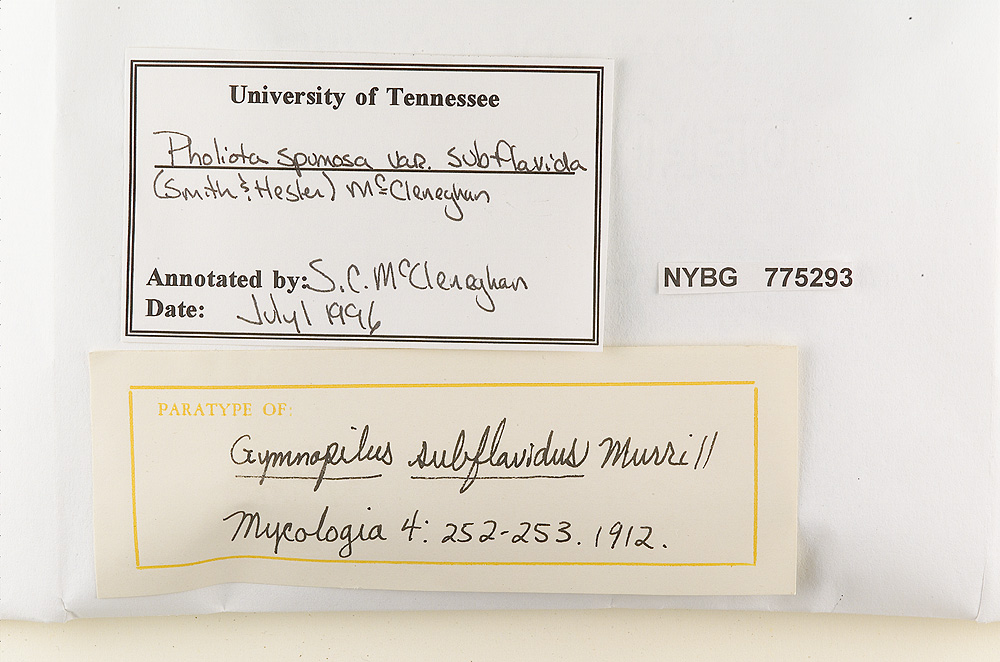 University of Tennessee
Pholiota spumosa var. subflavida
(Smith & Hesler) McCleneghan
Annotated by: S.C. McCleneghan
Date: July 1996
NYBG 775293
PARATYPE OF:
Gymnopilus subflavidus Murrill
Mycologia 4: 252-253. 1912.